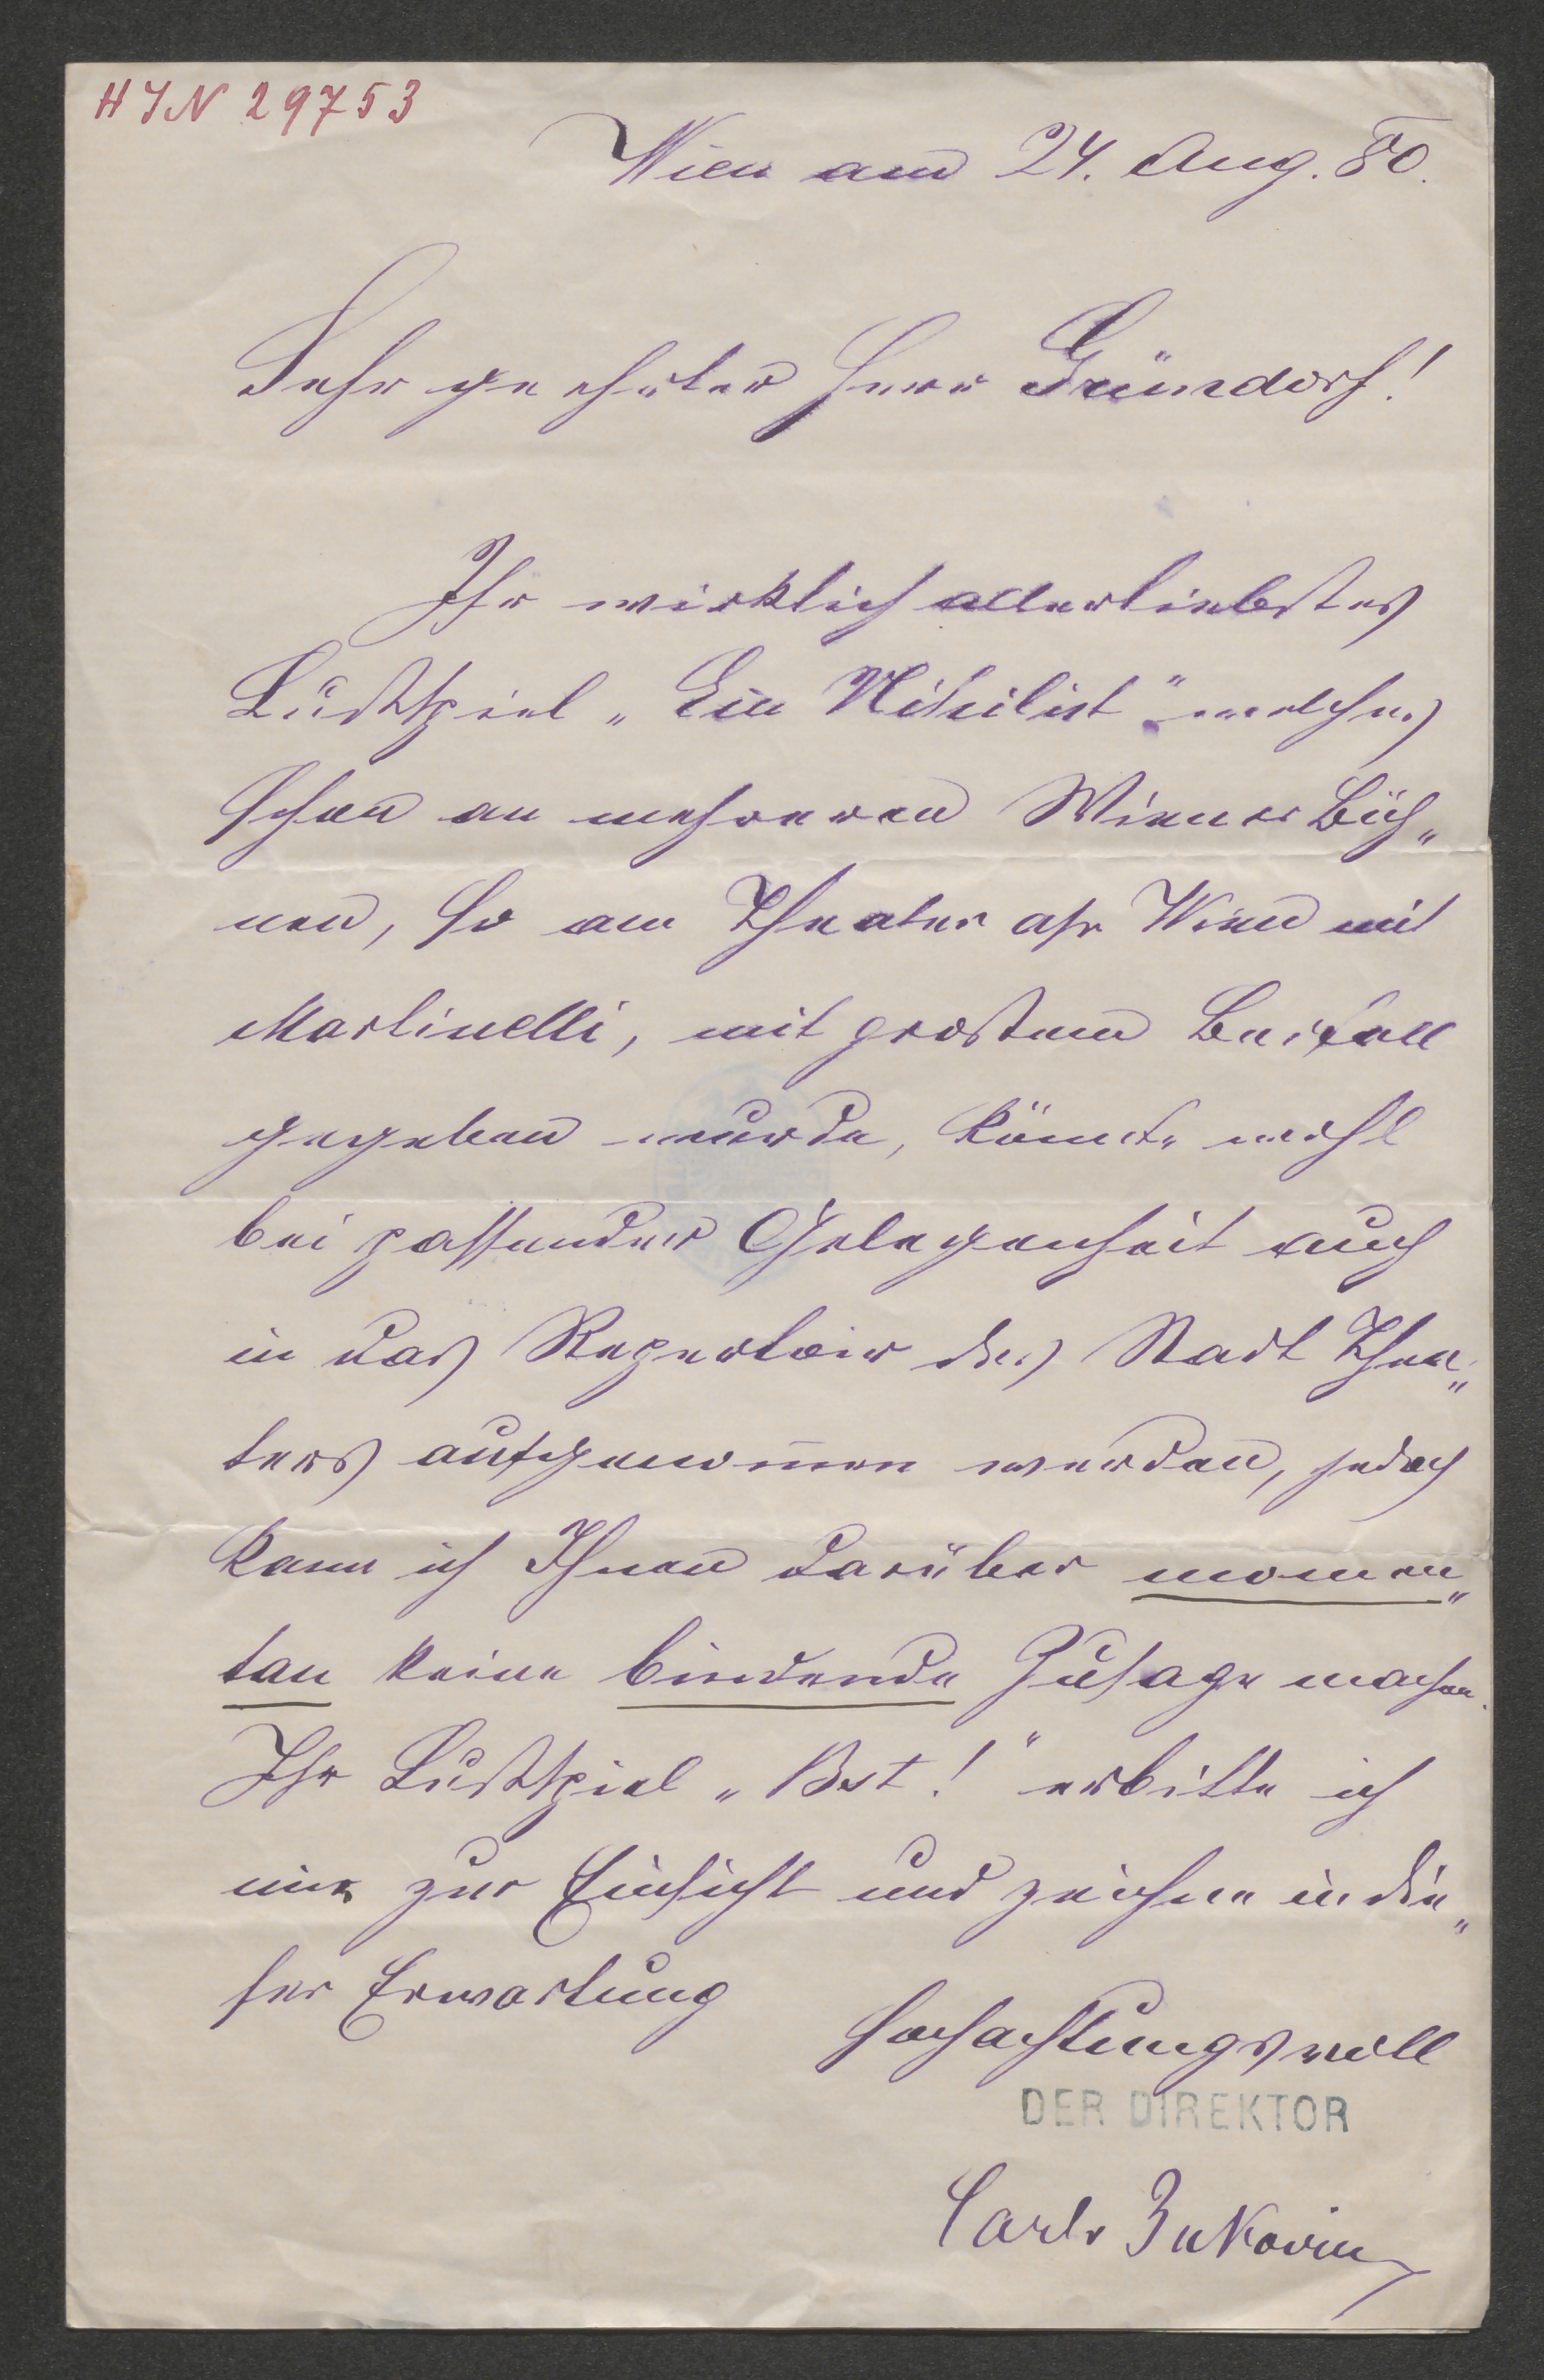 HIN 29753
Wien am 24. Aug. 80.
Sehr geehrter Herr Gründorf!
Ihr wirklich allerliebstes
Lustspiel „Ein Nihilist" welches
schon an mehreren Wiener Büh„
nen, so am Theater a/r Wien mit
Martinelli, mit großem Beifall
gegeben wurde, könnte wohl
bei passender Gelegenheit auch
in das Repertoir des Stadt Thea„
ters aufgenom̄en werden, jedoch
kann ich Ihnen darüber momen„
tan keine bindende Zusage machen.
Ihr Lustspiel „Bst!" erbitte ich
mir zur Einsicht und zeichne in die„
ser Erwartung
hochachtungsvoll
DER DIREKTOR
Carl v Bukovics